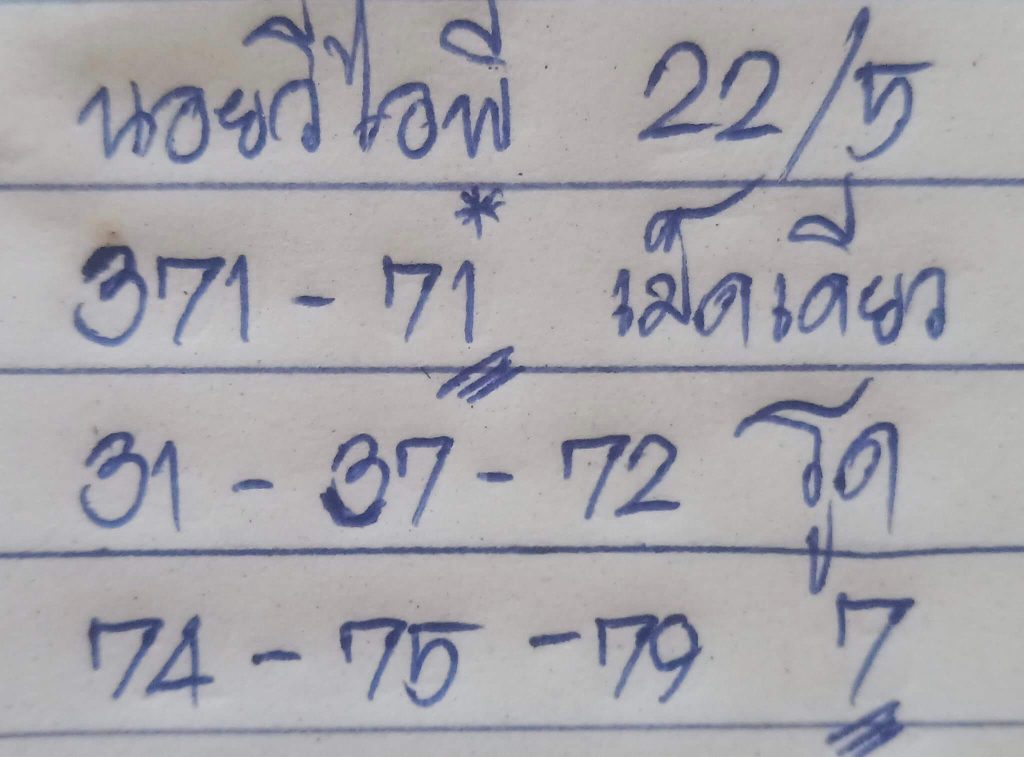 นอยวีไอพี 22/5
371 - 71* เม็ดเดียว
31 - 37 - 72 รูด
74 - 75 - 79 7